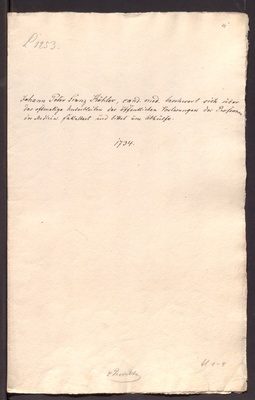 P 1253.
Johann Peter Franz Köhler, cand. med. beschwert sich über
das oftmalige Unterbleiben der öffentlichen Vorlesungen der Professoren
der Medizin Fakultaet und bittet um Abhülfe.
1794.